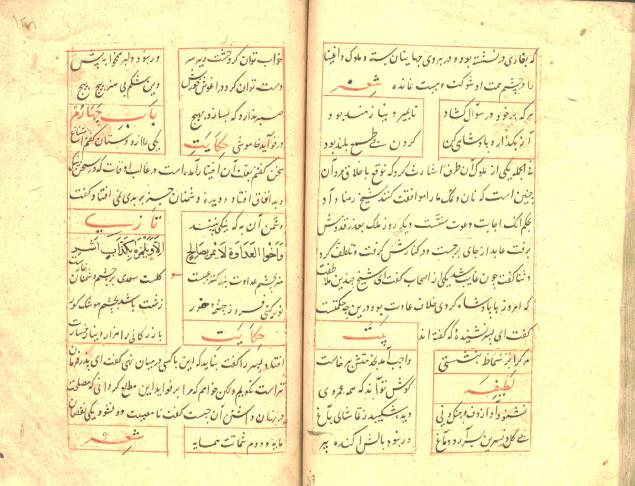 که بغاری درنشسته بود و در بروی جهانیان بسته و ملوک و اغنیا
را در چشم همت او شوکت و هیبت نمانده شعر
هر که بر خود در سوال گشاد تا بمیرد نیازمند بود
آز بگذار و پادشاهی کن گردن بی طمع بلند بود
فی الجمله یکی از ملوک آن طرف اشارت کرد که توقع باخلاق مردان
چنین است که نان و نمک ما موافقت کنند شیخ رضا داد
بحکم آنک اجابت دعوت سنتست دیگر روز ملک بعذر قدومش
برفت عابد از جای برجست و در کنارش گرفت و تلطف کرد
و ثنا گفت چون غایب شد یکی از اصحاب گفت ای شیخ چندین ملاطفت
که امروز با پادشاه کردی خلاف عادت بود درین چه حکمتست
گفت ای پسر نشنیده که گفته اند بیت
هر کرا بر سماط بنشستی واجب آمد بخدمتش برخاست
لطیفه گوش تواند که همه عمر وی
نشنود آواز دف و چنگ و نی دیده شکیبد ز تماشای باغ
بی گل و نسرین بسر آرد دماغ ور نبود بالش آکنده پر
خواب توان کرد خشت زیر سر ور نبود دلبر همخوابه پیش
دست توان کرد در آغوش خویش وین شکم بی هنر پیچ پیچ
صبر ندارد که بسازد بهیچ باب چهارم
در فواید خاموشی حکایت یکی را از دوستان گفتم امتناع
سخن گفتنم بعلت آن اختیار آمده است در غالب اوقات که در سخن نیک
و بد اتفاق افتد و دیده دشمنان جز بر بدی نمی افتد گفت
دشمن آن به که نیکی نبیند تازی
واخوا العداوة لا یمر بصالح الا ویلمزه بکذاب اشر
هنر بچشم عداوت بزرگتر عیبست گلست سعدی و در چشم دشمنان خارست
نور گیتی فروز چشمه هور زشت باشد بچشم موشک کور
حکایت بازرگانی را هزار دینار خسارت
افتاد پسر را گفت نباید که این با کسی در میان نهی گفت ای پدر فرمان
تراست نگویم ولیکن خواهم مرا بر فواید این مطلع گردانی که مصلحت
در نهان داشتن آن چیست گفت تا مصیبت دو نشود یکی نقصان
مایه و دوم شماتت همسایه شعر